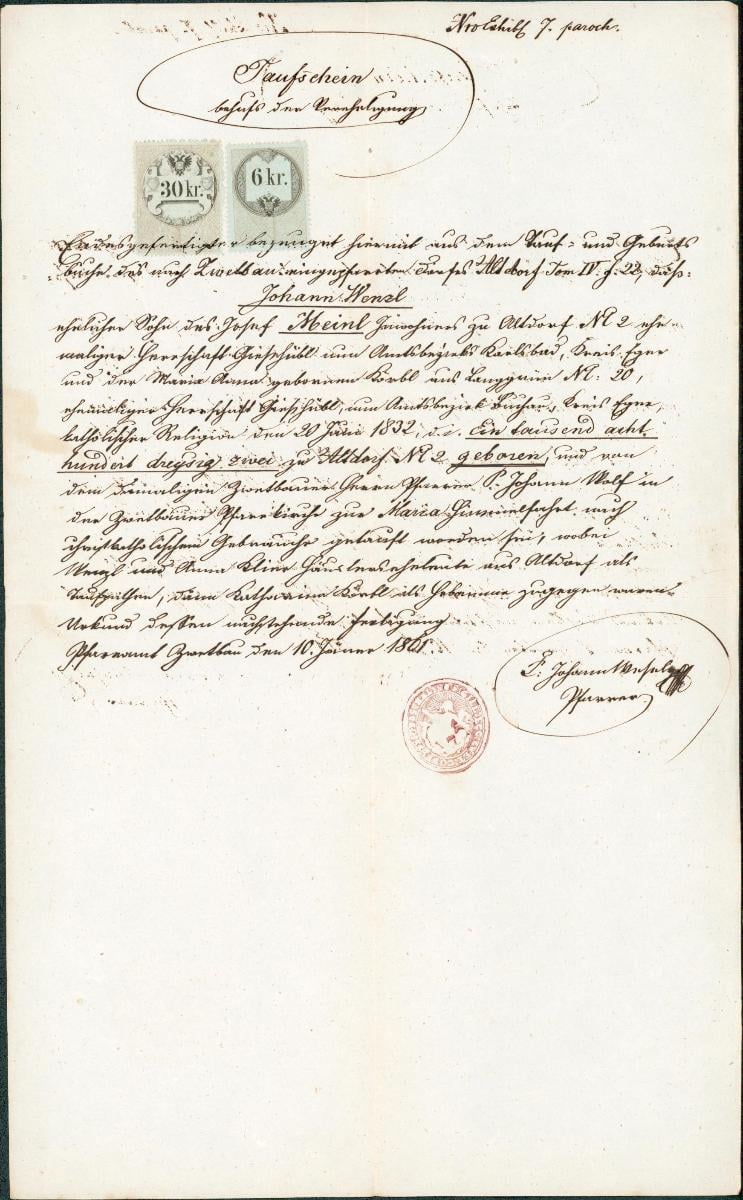 Nro Exhib 7. paroch.
Taufschein
behufs der Vereheligung
30 kr.
6 kr.
Endesgefertigter bezeuget hiermit aus dem Tauf- und Geburts
buche des nach Zwetbau eingepfarrten Dorfes Altdorf Tom IV. f. 22, daß
Johann Wenzl
ehelicher Sohn des Josef Meinl Inwohners zu Altdorf No 2 ehe-
maliger Herrschaft Gieshübl nun Amtsbezirks Karlsbad, Kreis Eger
und der Maria Anna gebornen Körbl aus Langgrün No: 20,
ehemaliger Herrschaft Gieshübl, nun Amtsbezirk Buchau, Kreis Eger,
katholischer Religion den 20 1832, d. i. Ein tausend acht
hundert dreysig zwei zu Altdorf No 2 geboren, und von
dem damaligen Zwetbauer Herrn Pfarrer P. Johann Wolf in
der Zwetbauer Pfarrkirche zur Maria Himmelfahrt nach
christkatholischem Gebrauche getauft worden sei, wobei
Wenzl und Anna Klier Häuslerseheleute aus Altdorf als
Taufpathen, dann Katharina Körbl als Hebamme zugegen waren.
Urkund dessen nachstehende Fertigung
Pfarramt Zwetbau den 10. Jäner 1861
P. Johann
Pfarrer